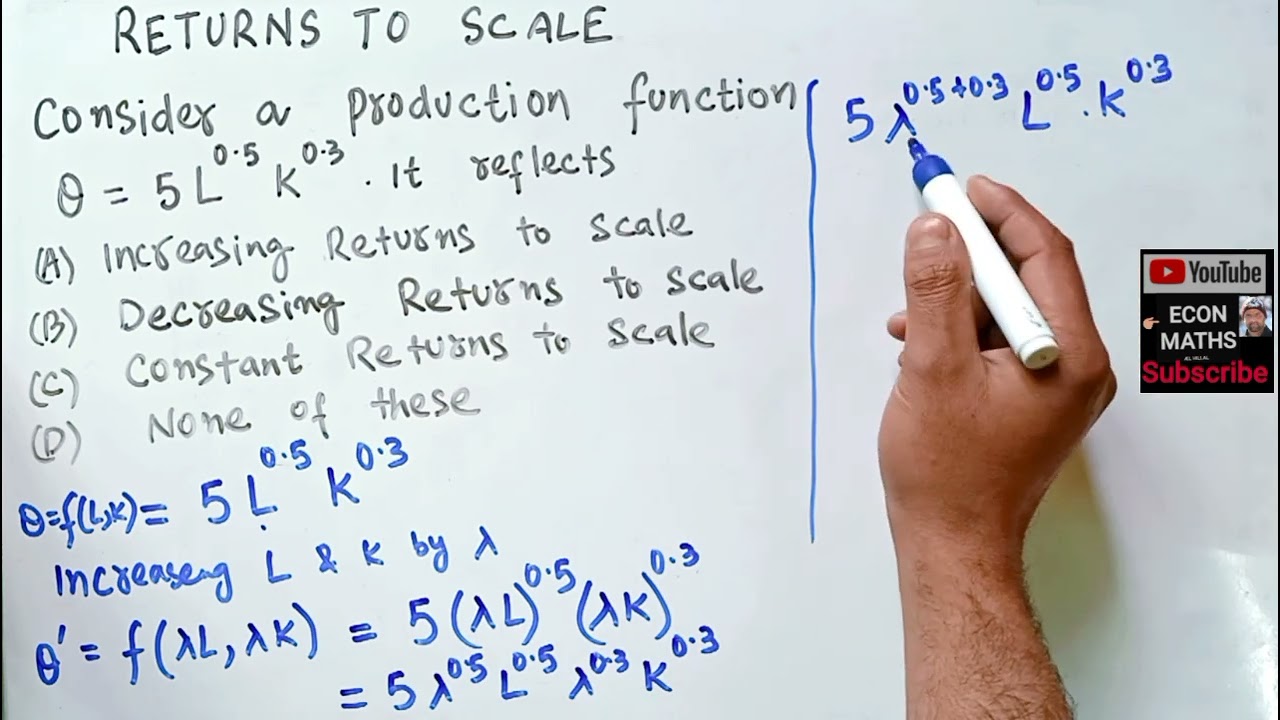 RETURNS TO SCALE
Consider a production function
θ = 5 L^0.5 K^0.3 . It reflects
(A) Increasing Returns to scale
(B) Decreasing Returns to scale
(C) Constant Returns to scale
(D) None of these
θ=f(L,K) = 5 L^0.5 K^0.3
Increaseng L & K by λ
θ' = f(λL, λK) = 5(λL)^0.5 (λK)^0.3
= 5 λ^0.5 L^0.5 λ^0.3 K^0.3
5 λ^0.5+0.3 L^0.5 . K^0.3
YouTube
ECON
MATHS
Subscribe